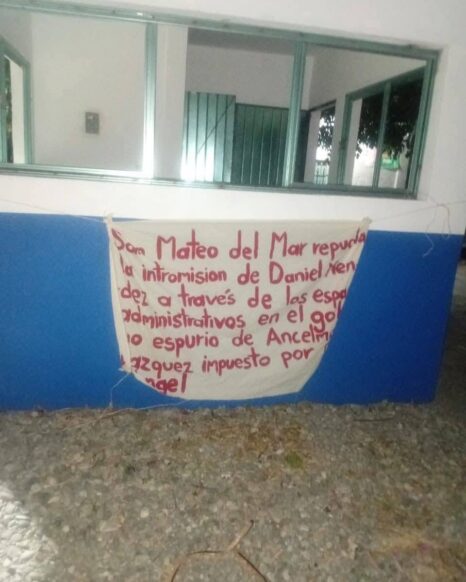 San Mateo del Mar repudia
la intromision de Daniel
dez a través de los
administrativos en el
no espurio de Ancelmo
Vázquez impuesto por